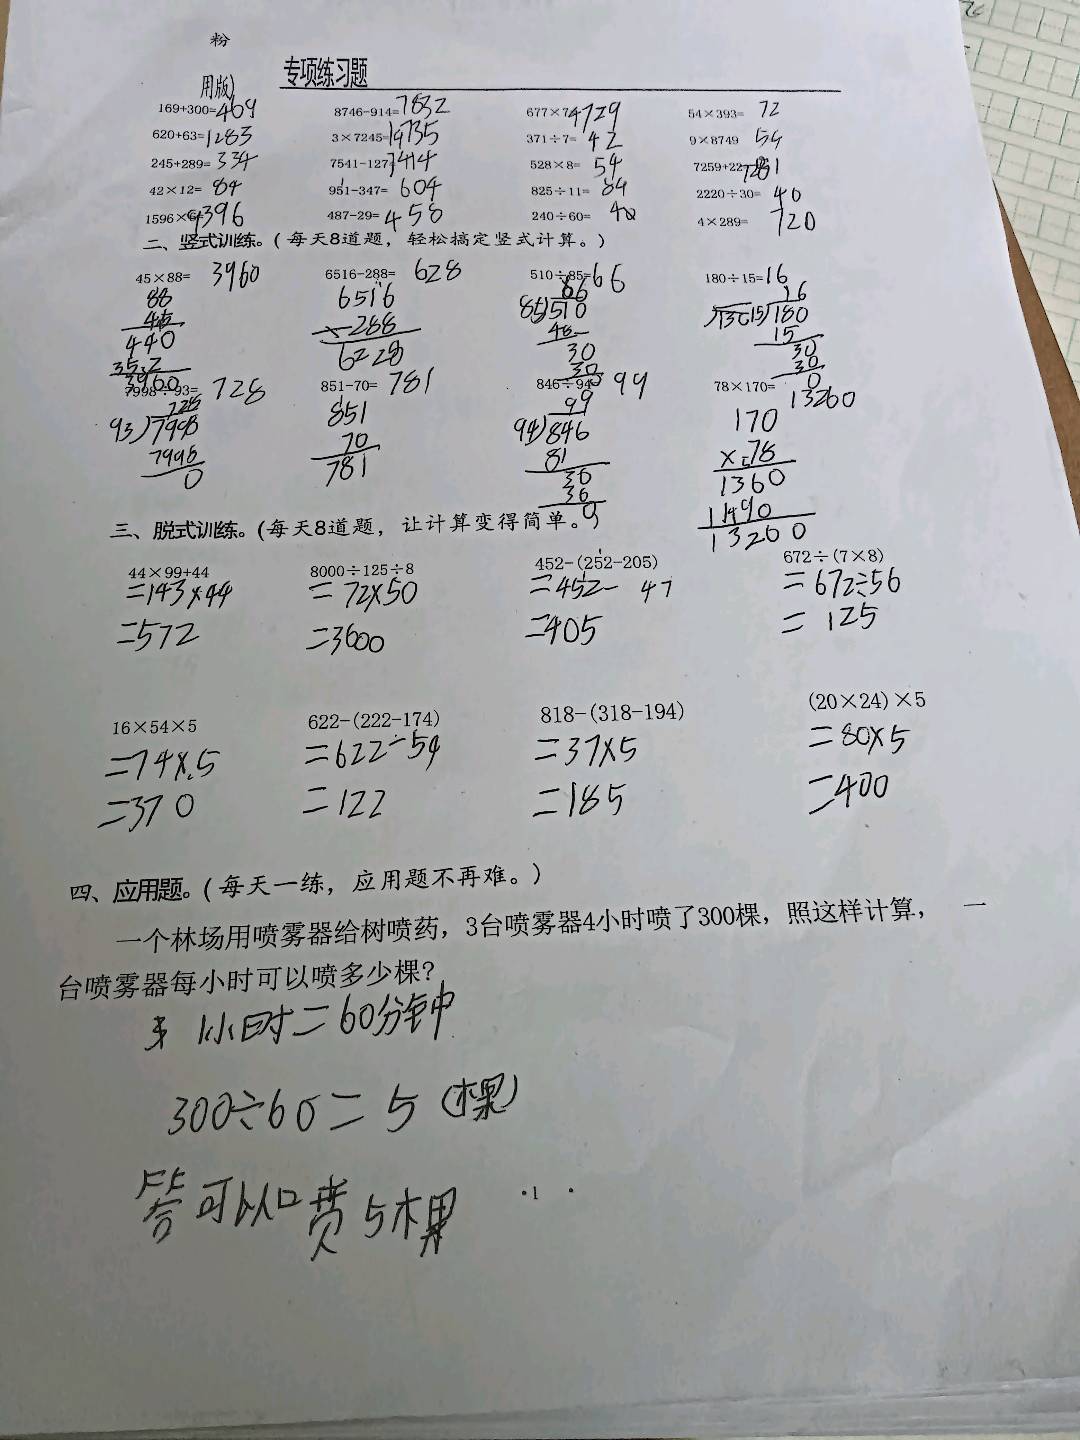 粉
用版)
专项练习题
169+300=469 8746-914=7832 677×7 4729 54×393= 72
620+63=1283 3×7245=19735 371÷7= 42 9×8749 54
245+289= 334 7541-127 7414 528×8= 54 7259+22 7281
42×12= 84 951-347= 604 825÷11= 84 2220÷30= 40
1596×6 4396 487-29= 458 240÷60= 40 4×289= 720
二、竖式训练。(每天8道题，轻松搞定竖式计算。)
45×88= 3960 6516-288= 628 510÷85=66 180÷15=16
88 6516 66 16
45 -288 85)510 15)180
440 6228 48 15
352 30 30
3960 30 30
0 0
7998÷93= 728 851-70= 781 846÷94= 99 78×170= 13260
728 851 99 170
93)7998 70 94)846 ×78
7998 781 81 1360
0 36 1190
36 13260
0
三、脱式训练。(每天8道题，让计算变得简单。)
44×99+44 8000÷125÷8 452-(252-205) 672÷(7×8)
=143×44 =72×50 =452- 47 =672÷56
=572 =3600 =405 =125
16×54×5 622-(222-174) 818-(318-194) (20×24)×5
=74×5 =622-54 =37×5 =80×5
=370 =122 =185 =400
四、应用题。(每天一练，应用题不再难。)
一个林场用喷雾器给树喷药，3台喷雾器4小时喷了300棵，照这样计算， 一
台喷雾器每小时可以喷多少棵?
1小时=60分钟
300÷60=5(棵)
答可以喷5棵
·1·